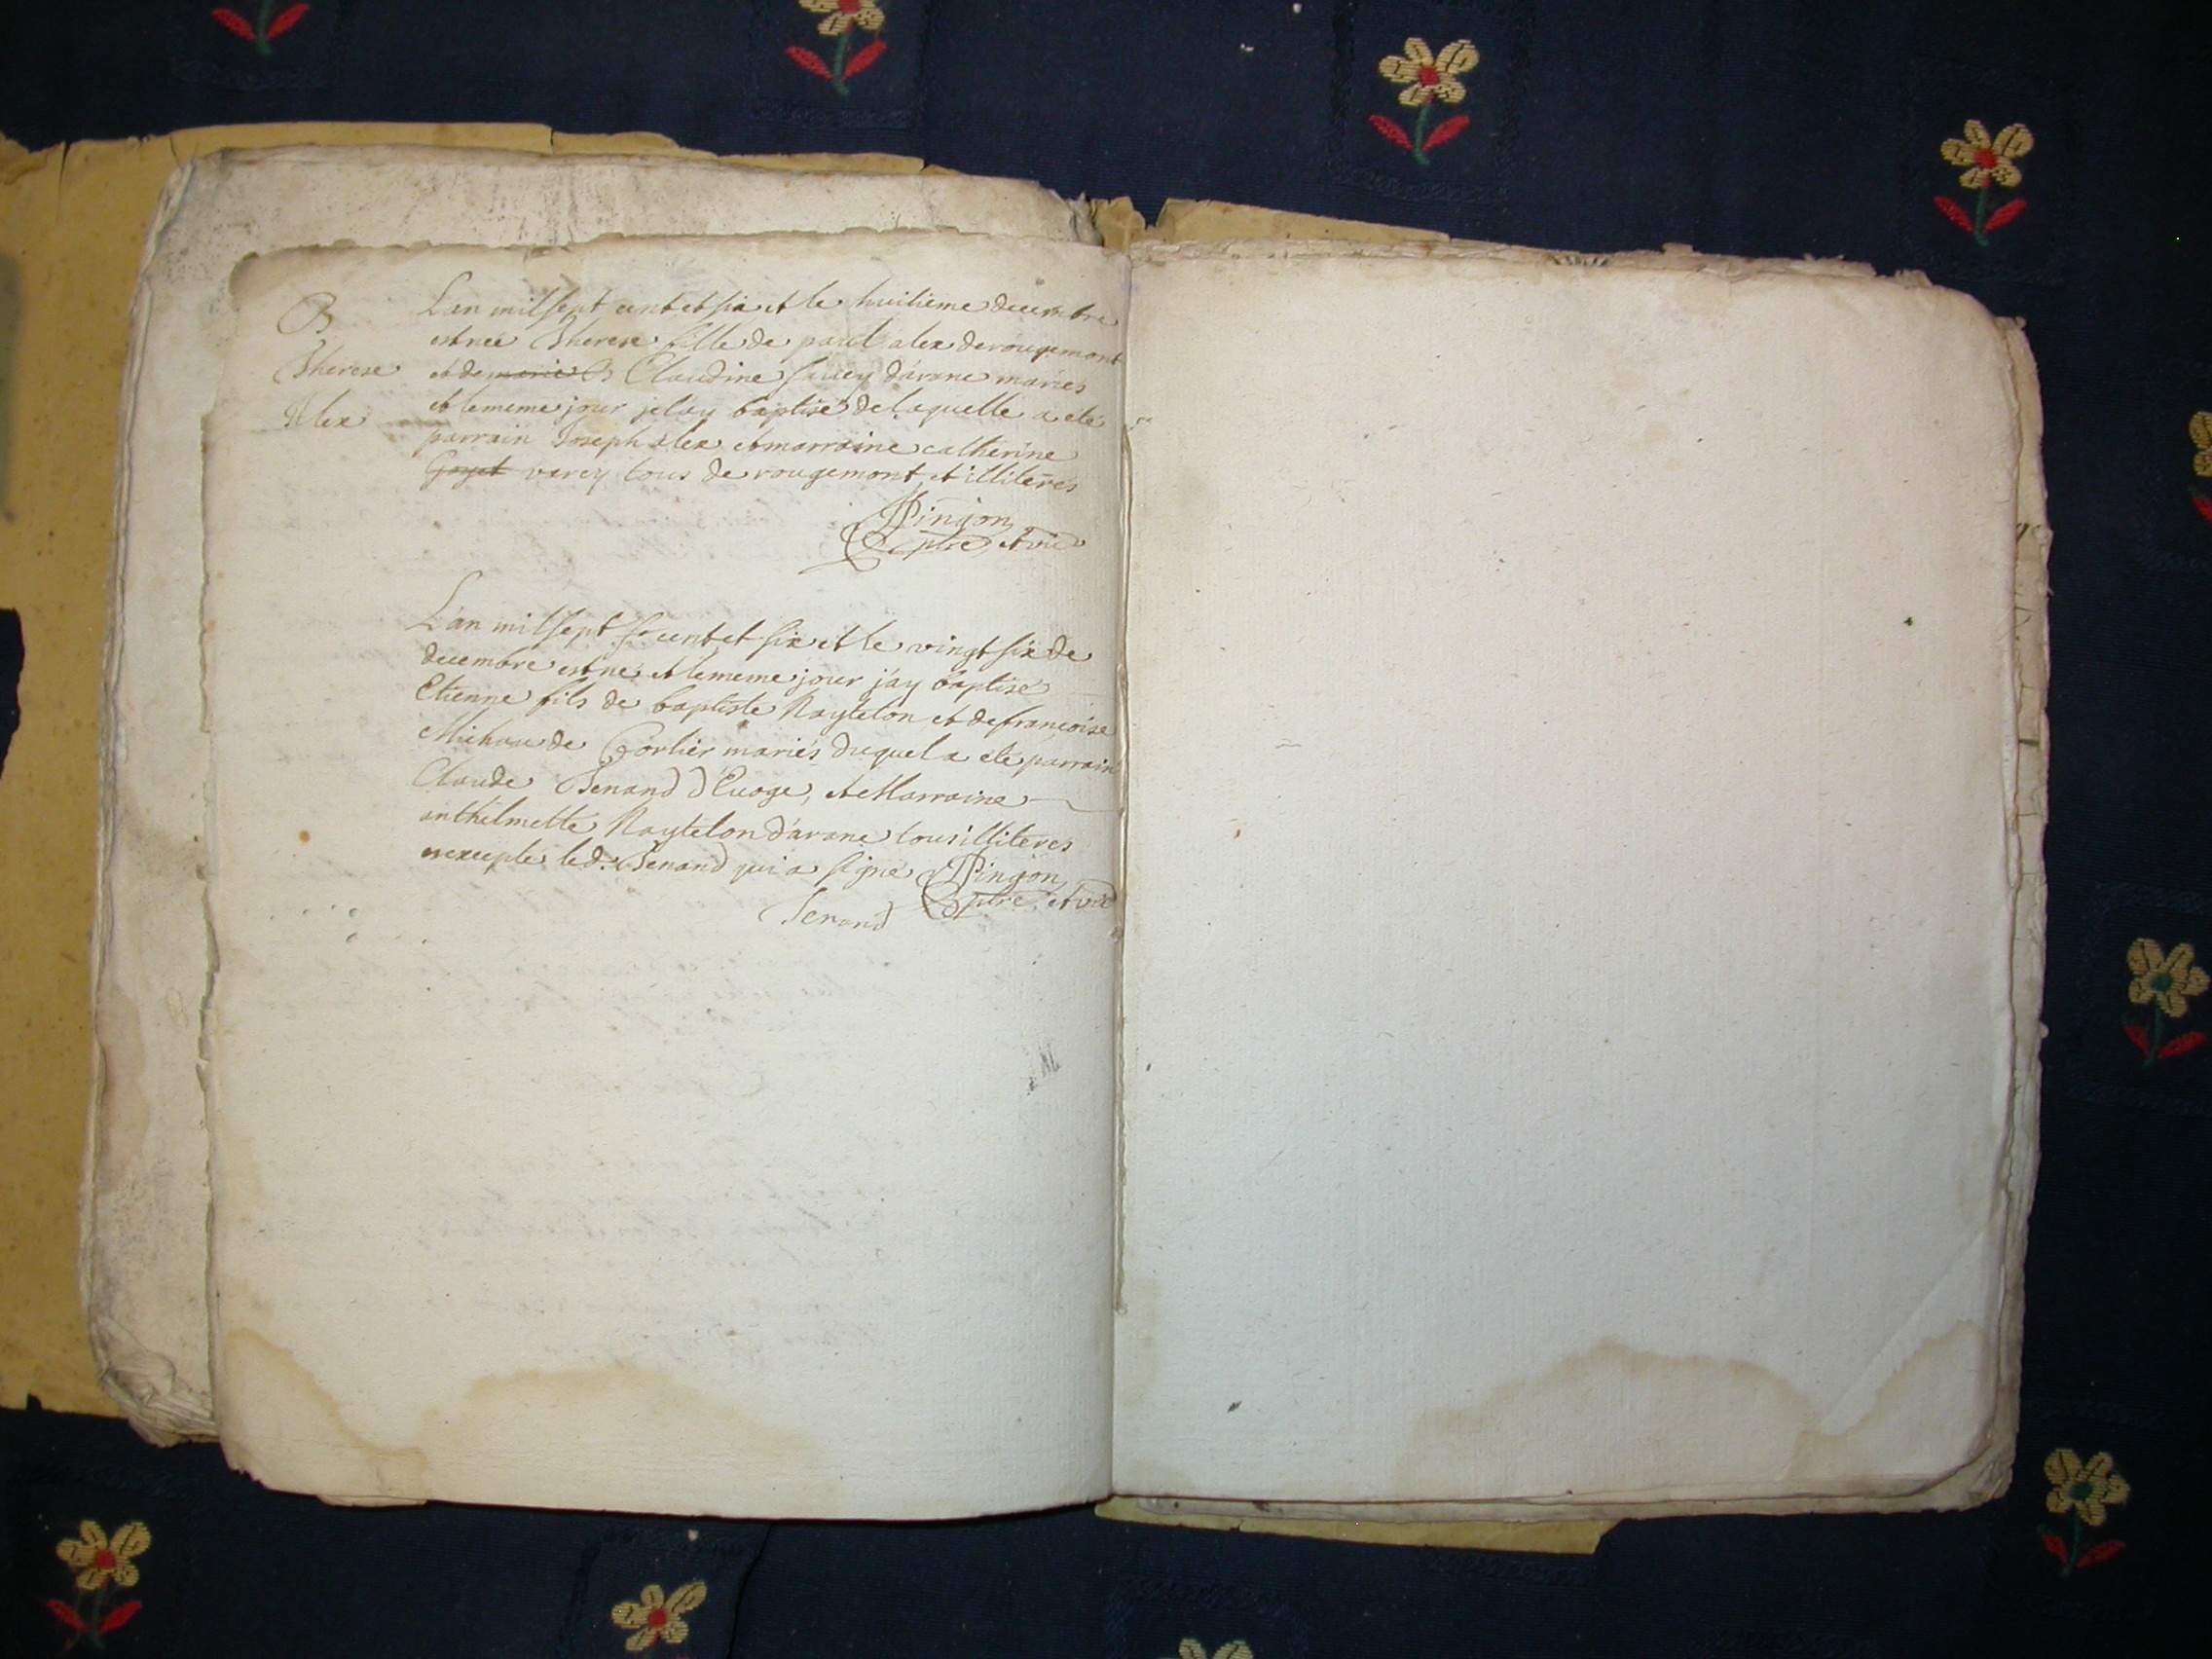 B
Therese
Alex
L'an mil sept cent et six et le huitieme decembre
est née Therese fille de paul alex de rougemont
et de marie Claudine savey d'arane mariés
et le meme jour je l'ay baptisé de laquelle a eté
parrain Joseph alex et marraine catherine
Goyet varey tous de rougemont et illiteres
Pingon
ptre et vic
L'an mil sept cent et six et le vingt six de
decembre est né et le meme jour j'ay baptisé
Etienne fils de baptiste Raytelon et de francoise
Michau de Corlier mariés duquel a eté parrain
Claude Tenand d'Evoge, et Marraine
anthelmette Raytelon d'arane tous illiteres
excepte led. Tenand qui a signé Pingon
ptre et vic
Tenand